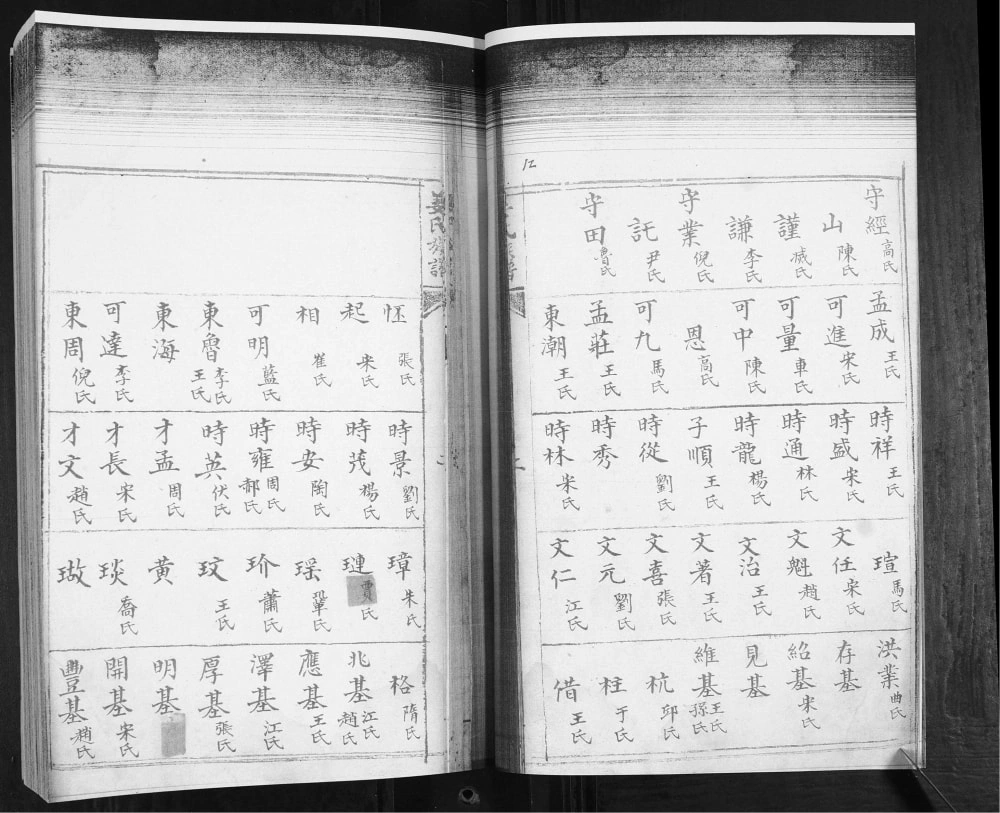 12
守經 高氏
山 陳氏
謹 戚氏
謙 李氏
守業 倪氏
託 尹氏
守田 魯氏
孟成 王氏
可進 宋氏
可量 車氏
可中 陳氏
恩 高氏
可九 馬氏
孟莊 王氏
東潮 王氏
時祥 王氏
時盛 宋氏
時通 林氏
時龍 楊氏
子順 王氏
時從 劉氏
時秀
時林 宋氏
瑄 馬氏
文任 宋氏
文魁 趙氏
文治 王氏
文著 王氏
文喜 張氏
文元 劉氏
文仁 江氏
洪業 曲氏
存基
紹基 宋氏
見基
維基 王氏 孫氏
杭 邱氏
柱 于氏
借 王氏
姜氏族譜
恠 張氏
起 宋氏
相 崔氏
可明 藍氏
東魯 李氏 王氏
東海
可達 李氏
東周 倪氏
時景 劉氏
時茂 楊氏
時安 陶氏
時雍 周氏 郝氏
時英 伏氏
才孟 周氏
才長 宋氏
才文 趙氏
璋 朱氏
璉 賈氏
瑶 鞏氏
玠 蕭氏
玟 王氏
黄
琰 喬氏
璈
格 隋氏
兆基 江氏 趙氏
應基 王氏
澤基 江氏
厚基 張氏
明基
開基 宋氏
豐基 趙氏